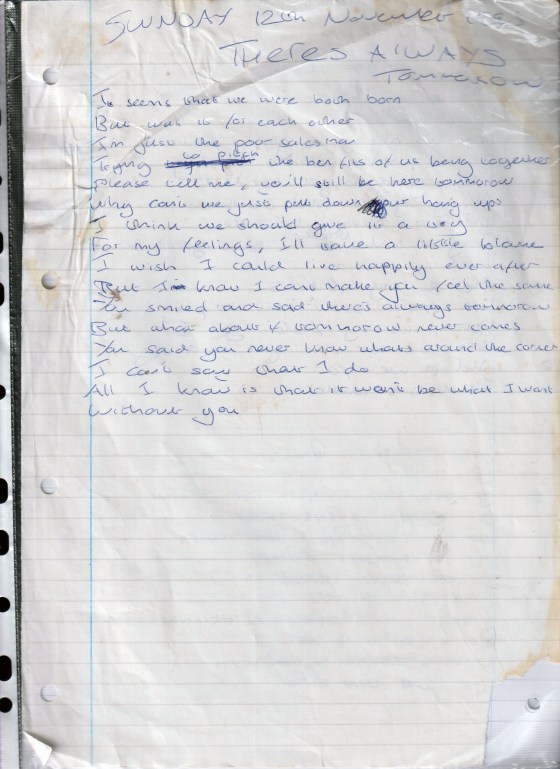 SUNDAY 12th November
THERES ALWAYS
Tomorrow
It seems that we were both born
But was it for each other
I'm just the poor salesman
Trying to pitch the benfits of us being together
Please tell me, you'll still be here tommorow
Why can't we just put down our hang ups
I think we should give it a try
For my feelings, I'll take a little blame
I wish I could live happily ever after
But I know I cant make you feel the same
You smiled and said there's always tommorow
But what about if tommorow never comes
You said you never know whats around the corner
I can't say that I do
All I know is that it won't be what I want
Without you